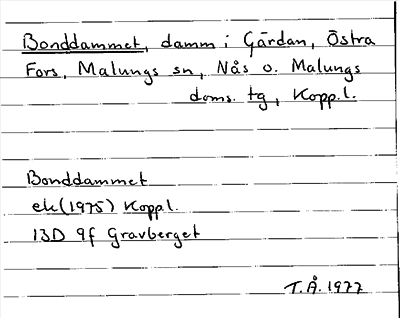 Bonddammet, damm i Gärdan, Östra
Fors, Malungs sn, Nås o. Malungs
doms. tg, Kopp.l.
Bonddammet
ek(1975) Koppl.
13D 9f Gravberget
T.Å. 1977